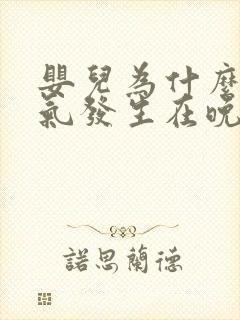 嬰兒為什麼
氣發生在晚
諾思蘭德